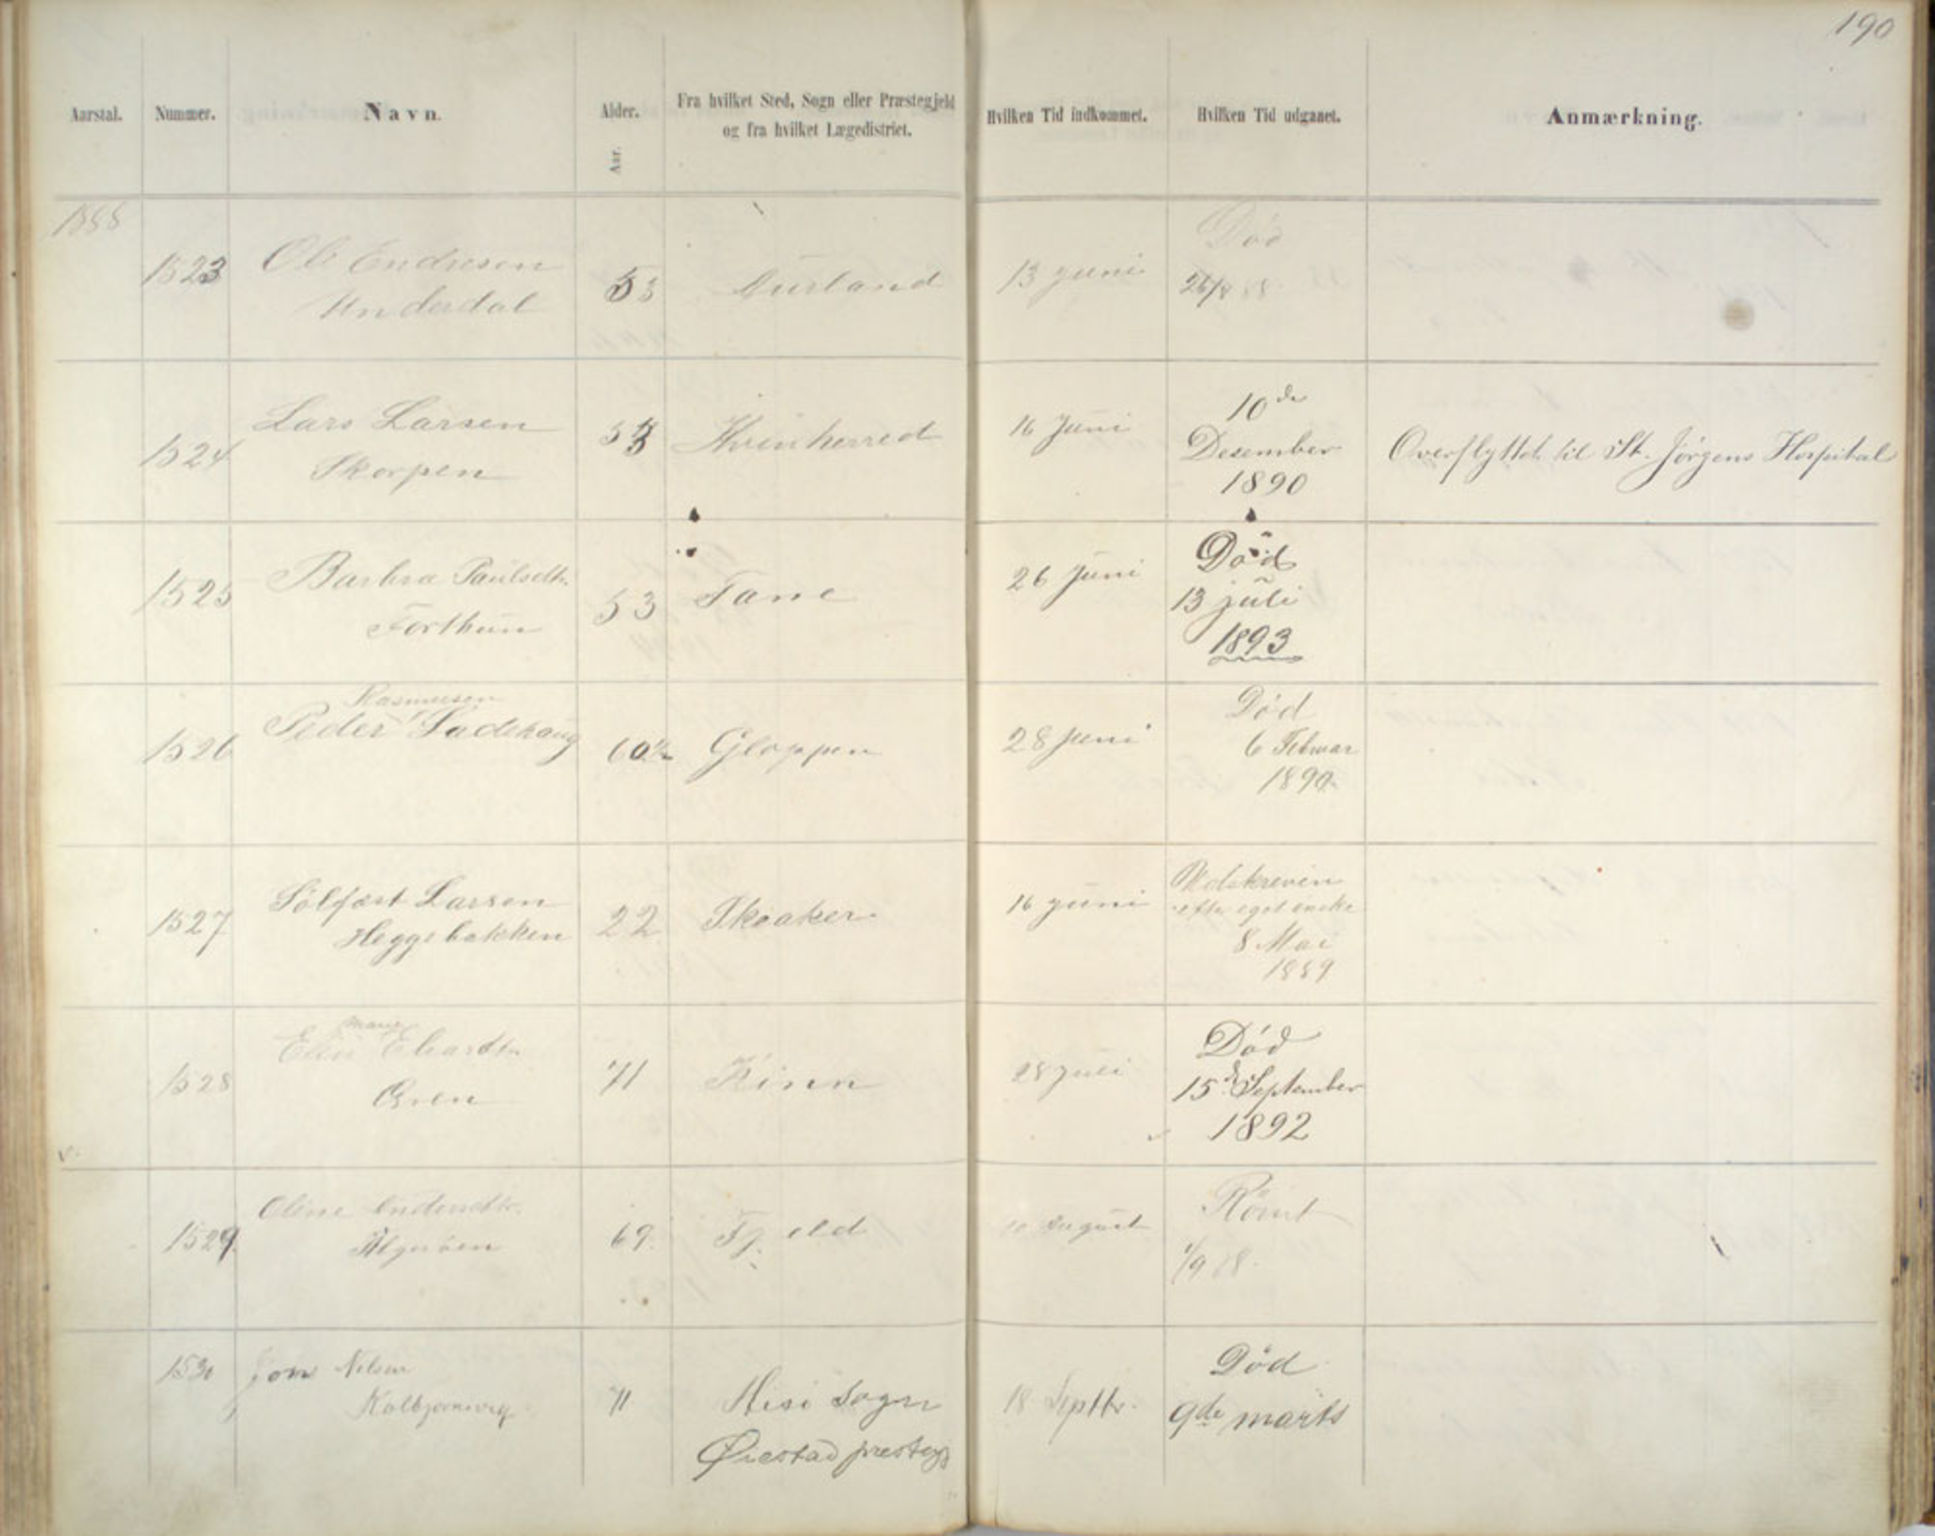 190
Aarstal. Nummer. Navn. Alder. Fra hvilket Sted, Sogn eller Præstegjeld Hvilken Tid indkommet. Hvilken Tid udgaaet. Anmærkning.
Aar. og fra hvilket Lægedistrict.
1888
Død
1523 Ole Endresen 53 Aurland 13 juni 26/8 88
Underdal
10de
Lars Larsen
1524 Kvinherred 16 Juni Desember Overflyttet til St. Jørgens Hospital
Skorpen 1890
Død
Barbra Paulsdtr. 26 Juni
1525 53 Fane 13 juli
Forthun 1893
Rasmussen Død
Peder
1526 60½ Gloppen 28 Juni 6 Februar
1890
Sølfæst Larsen
1527 22 Skeaker 16 juni efter eget ønske
Heggebakken 8 Mai
1889
Marie Død
1528 Elen 71 Kinn 28 juli 15de September
1892
Oline Rømt
1529 69 Fjeld August
1/9 88
Død
1530 Nilsen 71 Hisø Sogn 18 Septbr. 9de marts
Kolbjørnsvig
Øiestad præstegj